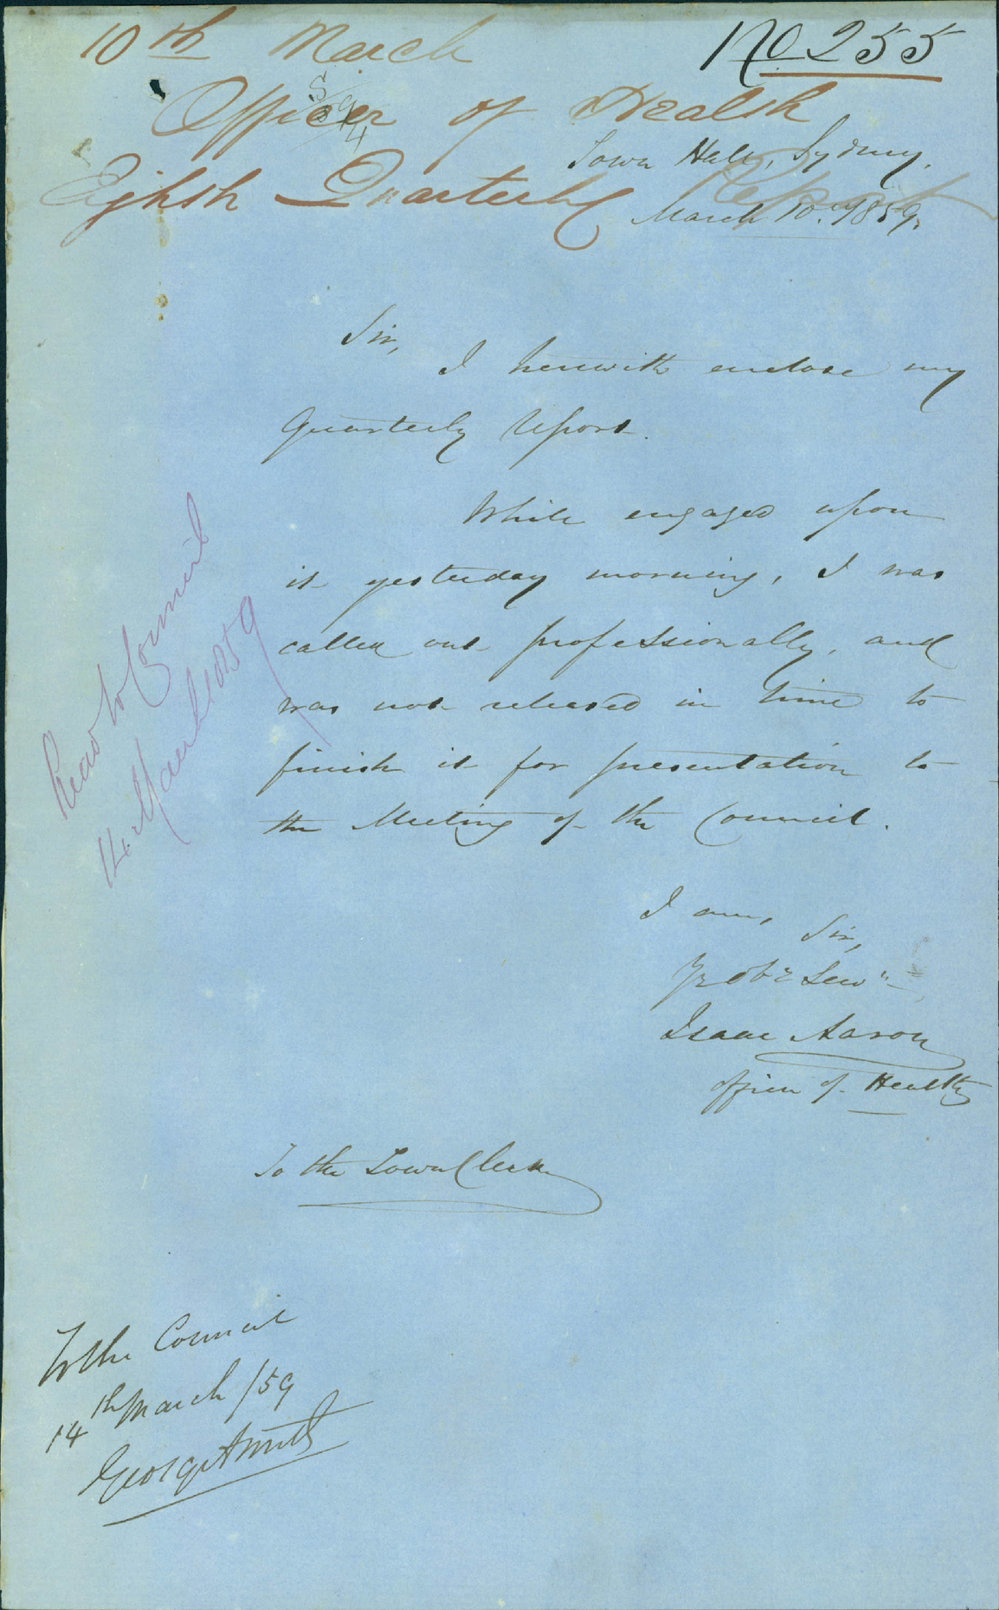 10th March
No 255
Officer of Health
Eighth Quarterly Report
Town Hall, Sydney,
March 10th, 1859.
Sir,
I herewith enclose my
Quarterly Report.
While engaged upon
it yesterday morning, I was
called out professionally, and
was not released in time to
finish it for presentation to
the Meeting of the Council.
I am, Sir,
Yr Obt Servt
Isaac Aaron
Officer of Health
To the Town Clerk
Read to Council
14 March 1859
To the Council
14th March /59
George A Smith